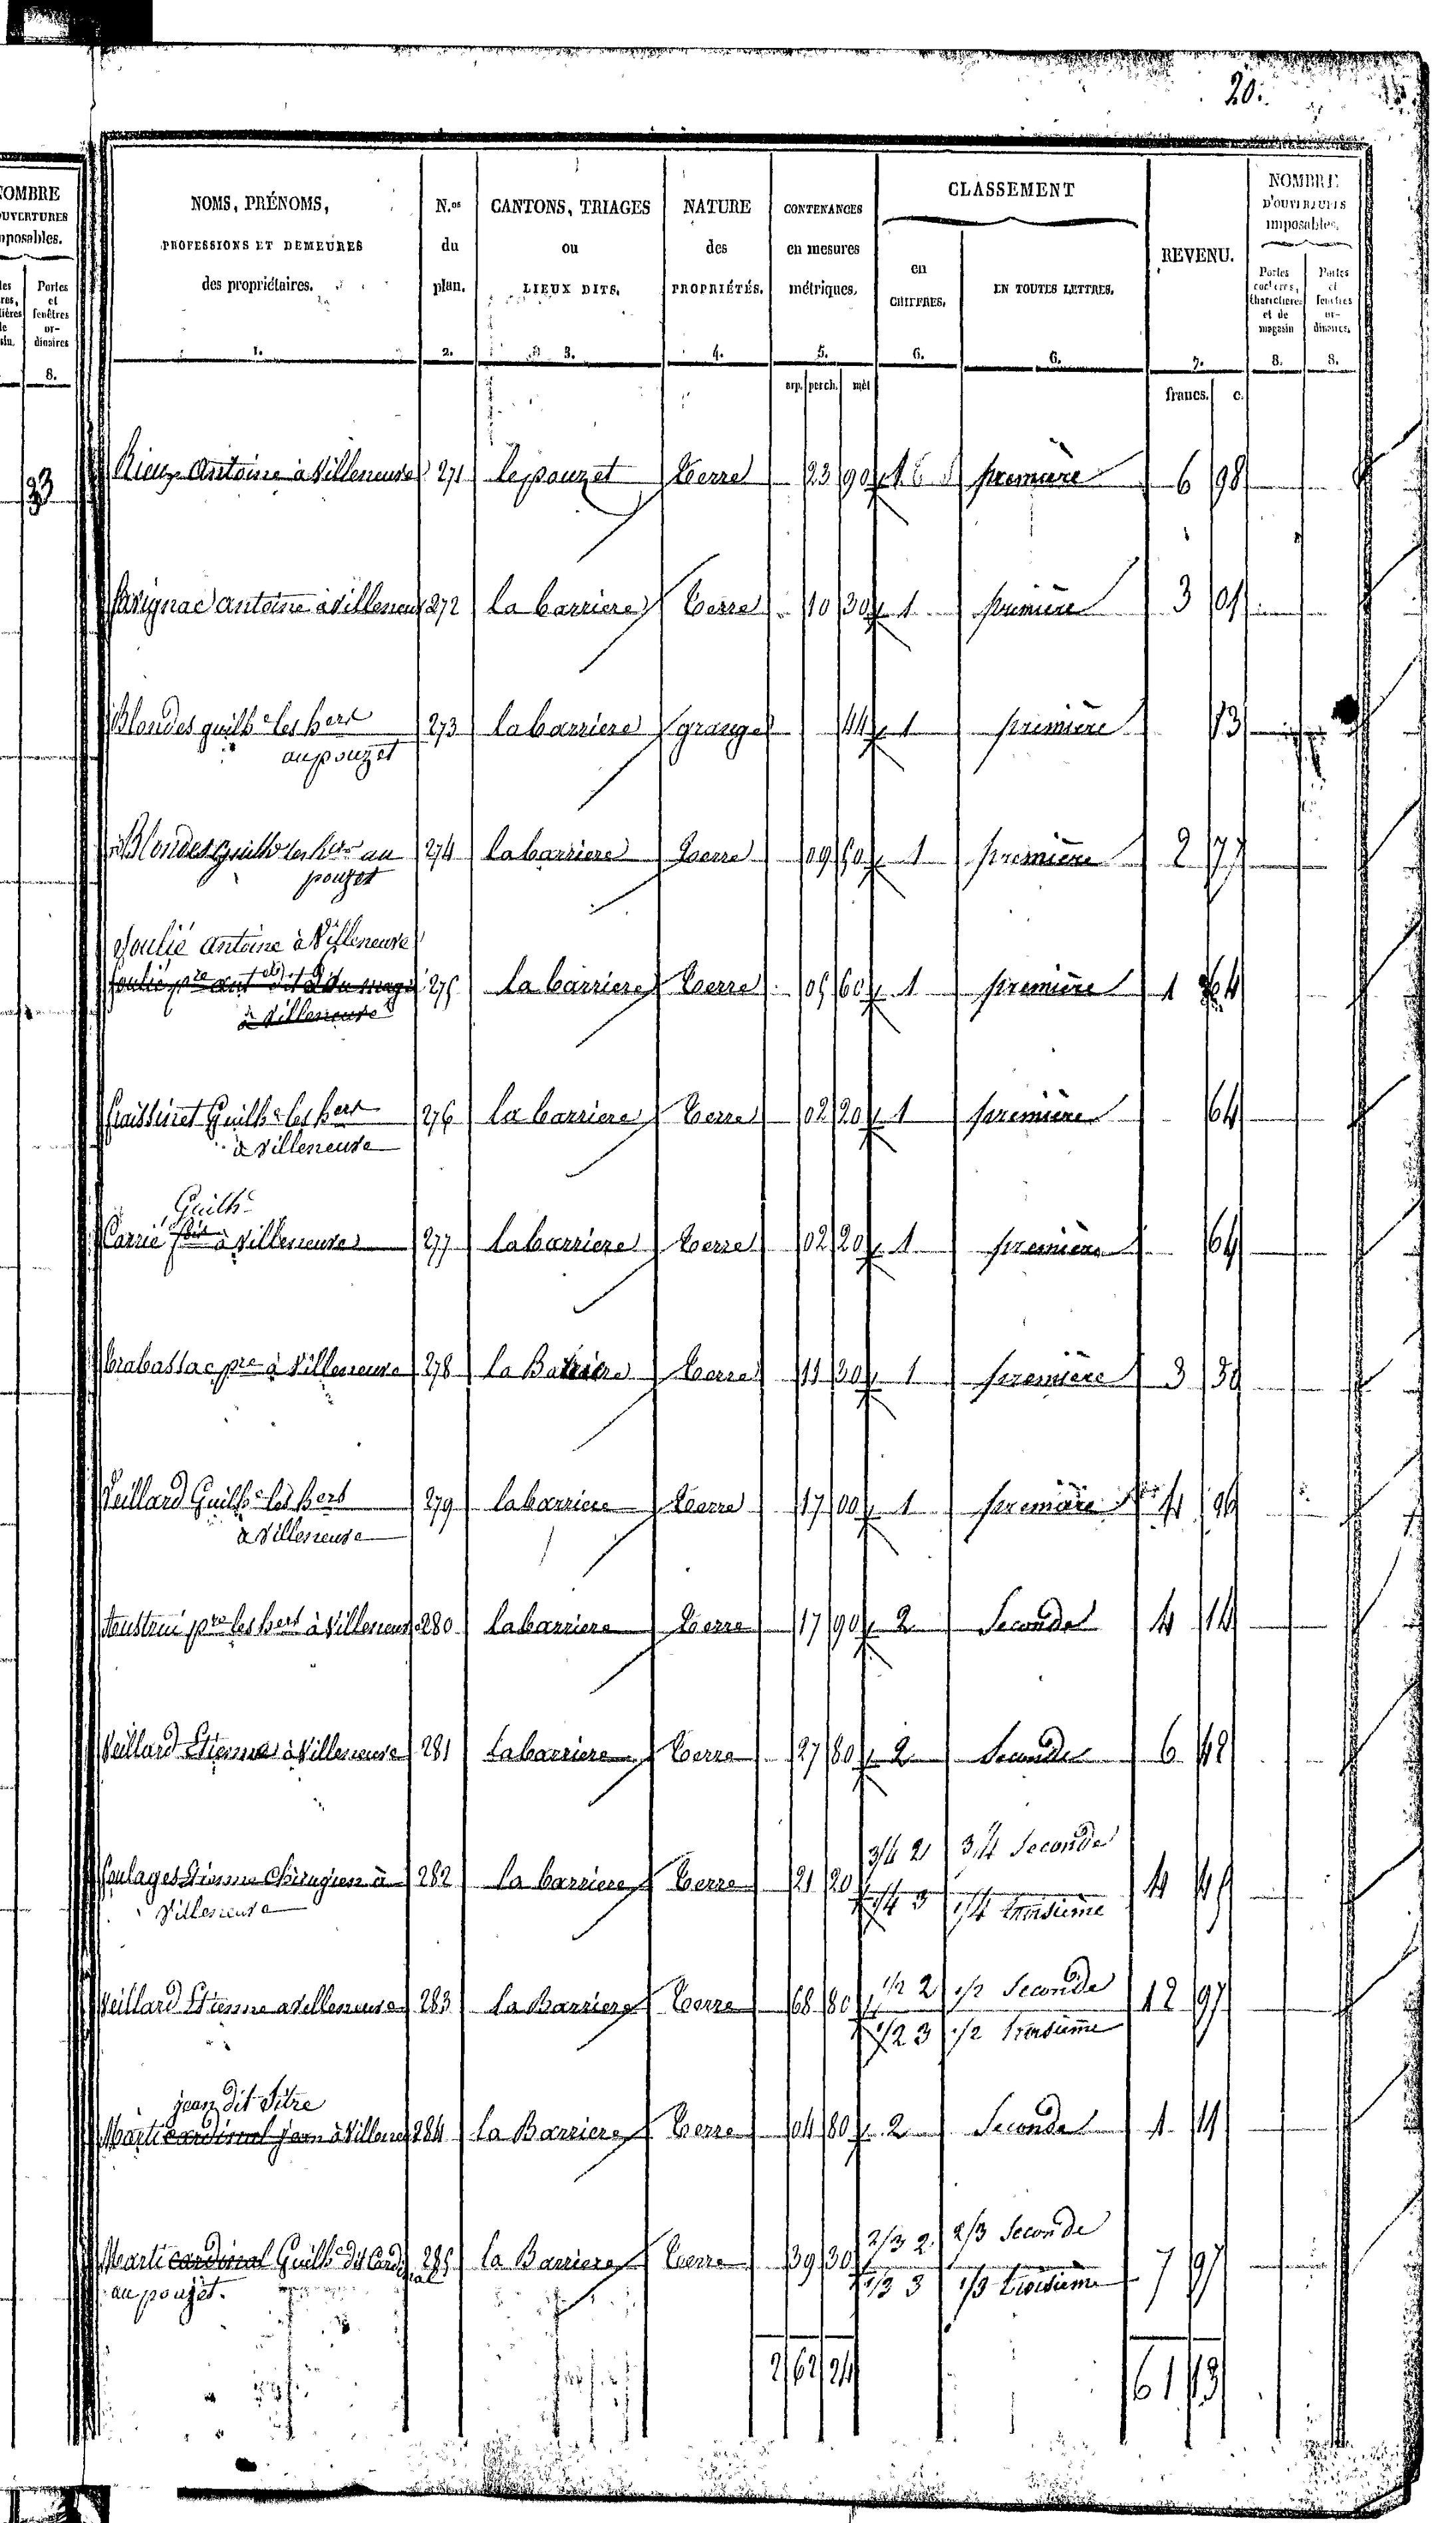 20.
NOMBRE
OUVERTURES
imposables.
Portes
et
fenêtres
or-
dinaires
8.
33
NOMS, PRÉNOMS,
PROFESSIONS ET DEMEURES
des propriétaires.
1.
N.os
du
plan.
2.
CANTONS, TRIAGES
ou
LIEUX DITS.
3.
NATURE
des
PROPRIÉTÉS.
4.
CONTENANCES
en mesures
métriques.
5.
CLASSEMENT
en
CHIFFRES.
6.
EN TOUTES LETTRES.
6.
REVENU.
7.
NOMBRE
D'OUVERTURES
imposables.
Portes
cochères,
charretières
et de
magasin
8.
Portes
et
fenêtres
or-
dinaires.
8.
arp. perch. mèt
francs. c.
Rieux Antoine à Villeneuve 271 le pouzet terre 23 90 1 première 6 98
Savignac antoine à Villeneuv 272 la barriere terre 10 30 1 première 3 01
Blondes guilhe les hers 273 la barriere grange 44 1 première 13
au pouzet
Blondes guilhe les hers au 274 la barriere terre 09 50 1 première 2 77
pouzet
Soulié antoine à Villeneuve
Soulié pre ant dit du 275 la barriere terre 05 60 1 première 1 64
à Villeneuve
fraissinet Guilhe les hers 276 la barriere terre 02 20 1 première 64
à Villeneuve
Guilhe
Carrié fois à Villeneuve 277 la barriere terre 02 20 1 première 64
trabassac pre à Villeneuve 278 la Barriere terre 11 30 1 première 3 30
Veillard Guilhe les hers 279 la barriere terre 17 00 1 première 4 96
à Villeneuve
Austrui pre les hers à Villeneuve 280 la barriere terre 17 90 2 Seconde 4 14
Veillard Etienne à Villeneuve 281 la barriere terre 27 80 2 Seconde 6 42
3/4 2 3/4 Seconde
Soulages Etienne Chirugien à 282 la barriere terre 21 20 4 45
Villeneuve 1/4 3 1/4 troisième
1/2 2 1/2 Seconde
Veillard Etienne a Villeneuve 283 la Barriere terre 68 80 12 97
1/2 3 1/2 troisième
jean dit Titre
Marti cardinal jean à Villeneuv 284 la Barriere terre 04 80 2 Seconde 1 11
2/3 2 2/3 Seconde
Marti cardinal Guilhe dit Cardinal 285 la Barriere terre 39 30 7 97
au pouzet. 1/3 3 1/3 troisième
2 62 24 61 13